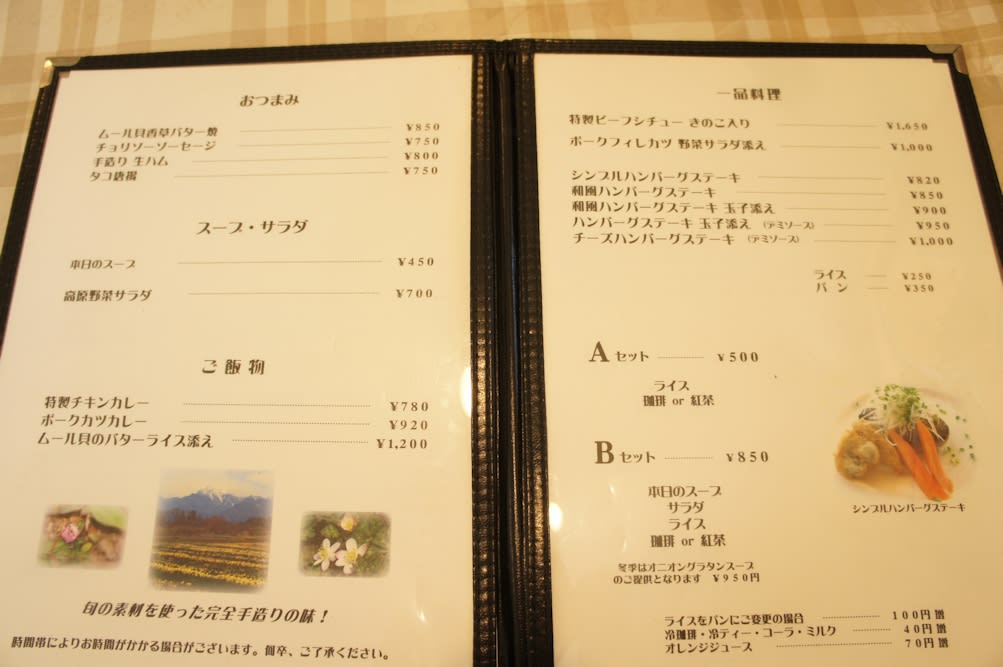 おつまみ
ムール貝香草バター焼 ¥850
チョリソーソーセージ ¥750
手造り 生ハム ¥800
タコ唐揚 ¥750
スープ・サラダ
本日のスープ ¥450
高原野菜サラダ ¥700
ご飯物
特製チキンカレー ¥780
ポークカツカレー ¥920
ムール貝のバターライス添え ¥1,200
旬の素材を使った完全手造りの味！
時間帯によりお時間がかかる場合がございます。何卒、ご了承ください。
一品料理
特製ビーフシチュー きのこ入り ¥1,650
ポークフィレカツ 野菜サラダ添え ¥1,000
シンプルハンバーグステーキ ¥820
和風ハンバーグステーキ ¥850
和風ハンバーグステーキ 玉子添え ¥900
ハンバーグステーキ 玉子添え （デミソース） ¥950
チーズハンバーグステーキ （デミソース） ¥1,000
ライス ¥250
パン ¥350
Aセット ¥500
ライス
珈琲 or 紅茶
Bセット ¥850
本日のスープ
サラダ
ライス
珈琲 or 紅茶
冬季はオニオングラタンスープ
のご提供となります ¥950円
シンプルハンバーグステーキ
ライスをパンにご変更の場合 100円 増
冷珈琲・冷ティー・コーラ・ミルク 40円 増
オレンジジュース 70円 増